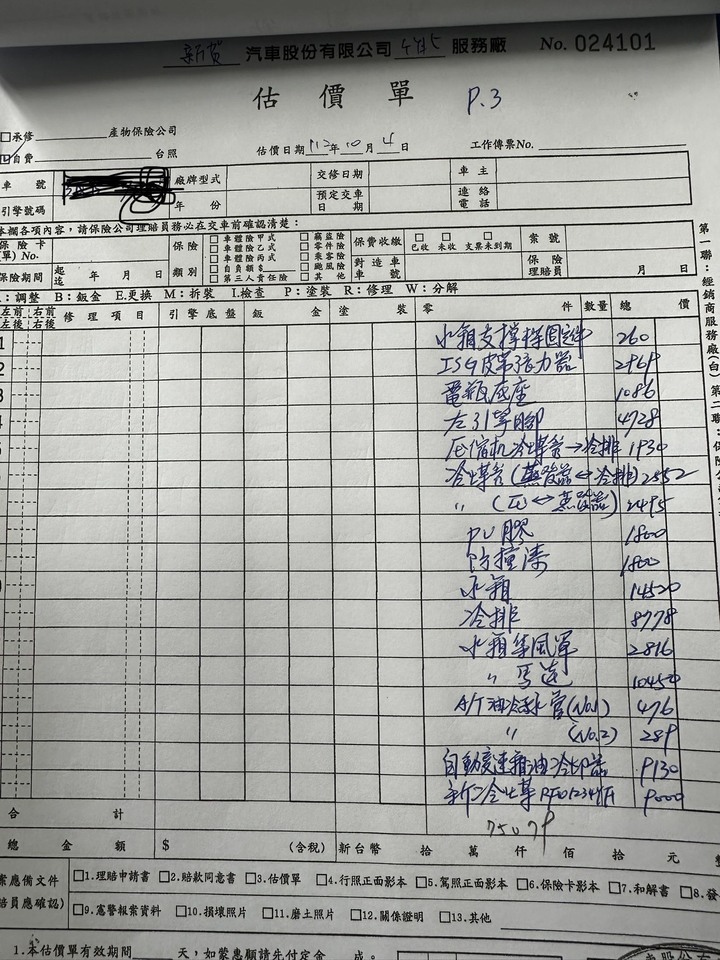 新賀 汽車股份有限公司 服務廠 No. 024101
估價單 P.3
□承修 產物保險公司
□自費 台照 估價日期 112年10月4日 工作傳票No.
車號 廠牌型式 交修日期 車主
引擎號碼 年份 預定交車日期 連絡電話
本欄各項內容,請保險公司理賠員務必在交車前確認清楚:
保險卡(單)No. 保險類別 □車體險甲式 □竊盜險 保費收繳 □已收 □未收 □支票未到期 案號
□車體險乙式 □零件險
□車體險丙式 □乘客險
保險期間 起迄 年 月 日 □自負額$ □颱風險 對造車車號 保險理賠員 月 日
□第三人責任險 □其他
A:調整 B:鈑金 E.更換 M:拆裝 I.檢查 P:塗裝 R:修理 W:分解
左前 右前 左後 右後 修理項目 引擎底盤 鈑金 塗裝 零件 數量 總價
水箱支撐樑固定件 260
ISG皮帶張力器 2969
電瓶底座 1086
左引擎腳 4728
壓縮机冷媒管→冷排 1930
冷媒管(蒸發器↔冷排) 2552
〃 (压↔蒸發器) 2495
PU膠 1800
防撞漆 1800
水箱 14520
冷排 8778
水箱集風罩 2816
〃 馬達 10450
A/T油冷卻水管(No.1) 476
〃 (No.2) 289
自動變速箱油冷卻器 9130
新冷媒 9000
75079
合計
總金額 $ (含稅) 新台幣 拾 萬 仟 佰 拾 元 整
□1.理賠申請書 □2.賠款同意書 □3.估價單 □4.行照正面影本 □5.駕照正面影本 □6.保險卡影本 □7.和解書 □8.發
□9.憲警報案資料 □10.損壞照片 □11.磨土照片 □12.關係證明 □13.其他
1.本估價單有效期間 天,如蒙惠顧請先付定金 成。
第一聯:經銷商服務廠(白)